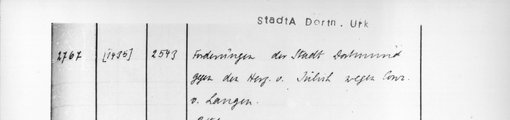 StadtA Dortm. Urk
2767 [1485] 2543 Forderungen der Stadt Dortmund
gegen den Herz. v. Jülich wegen Conr.
v. Langen.